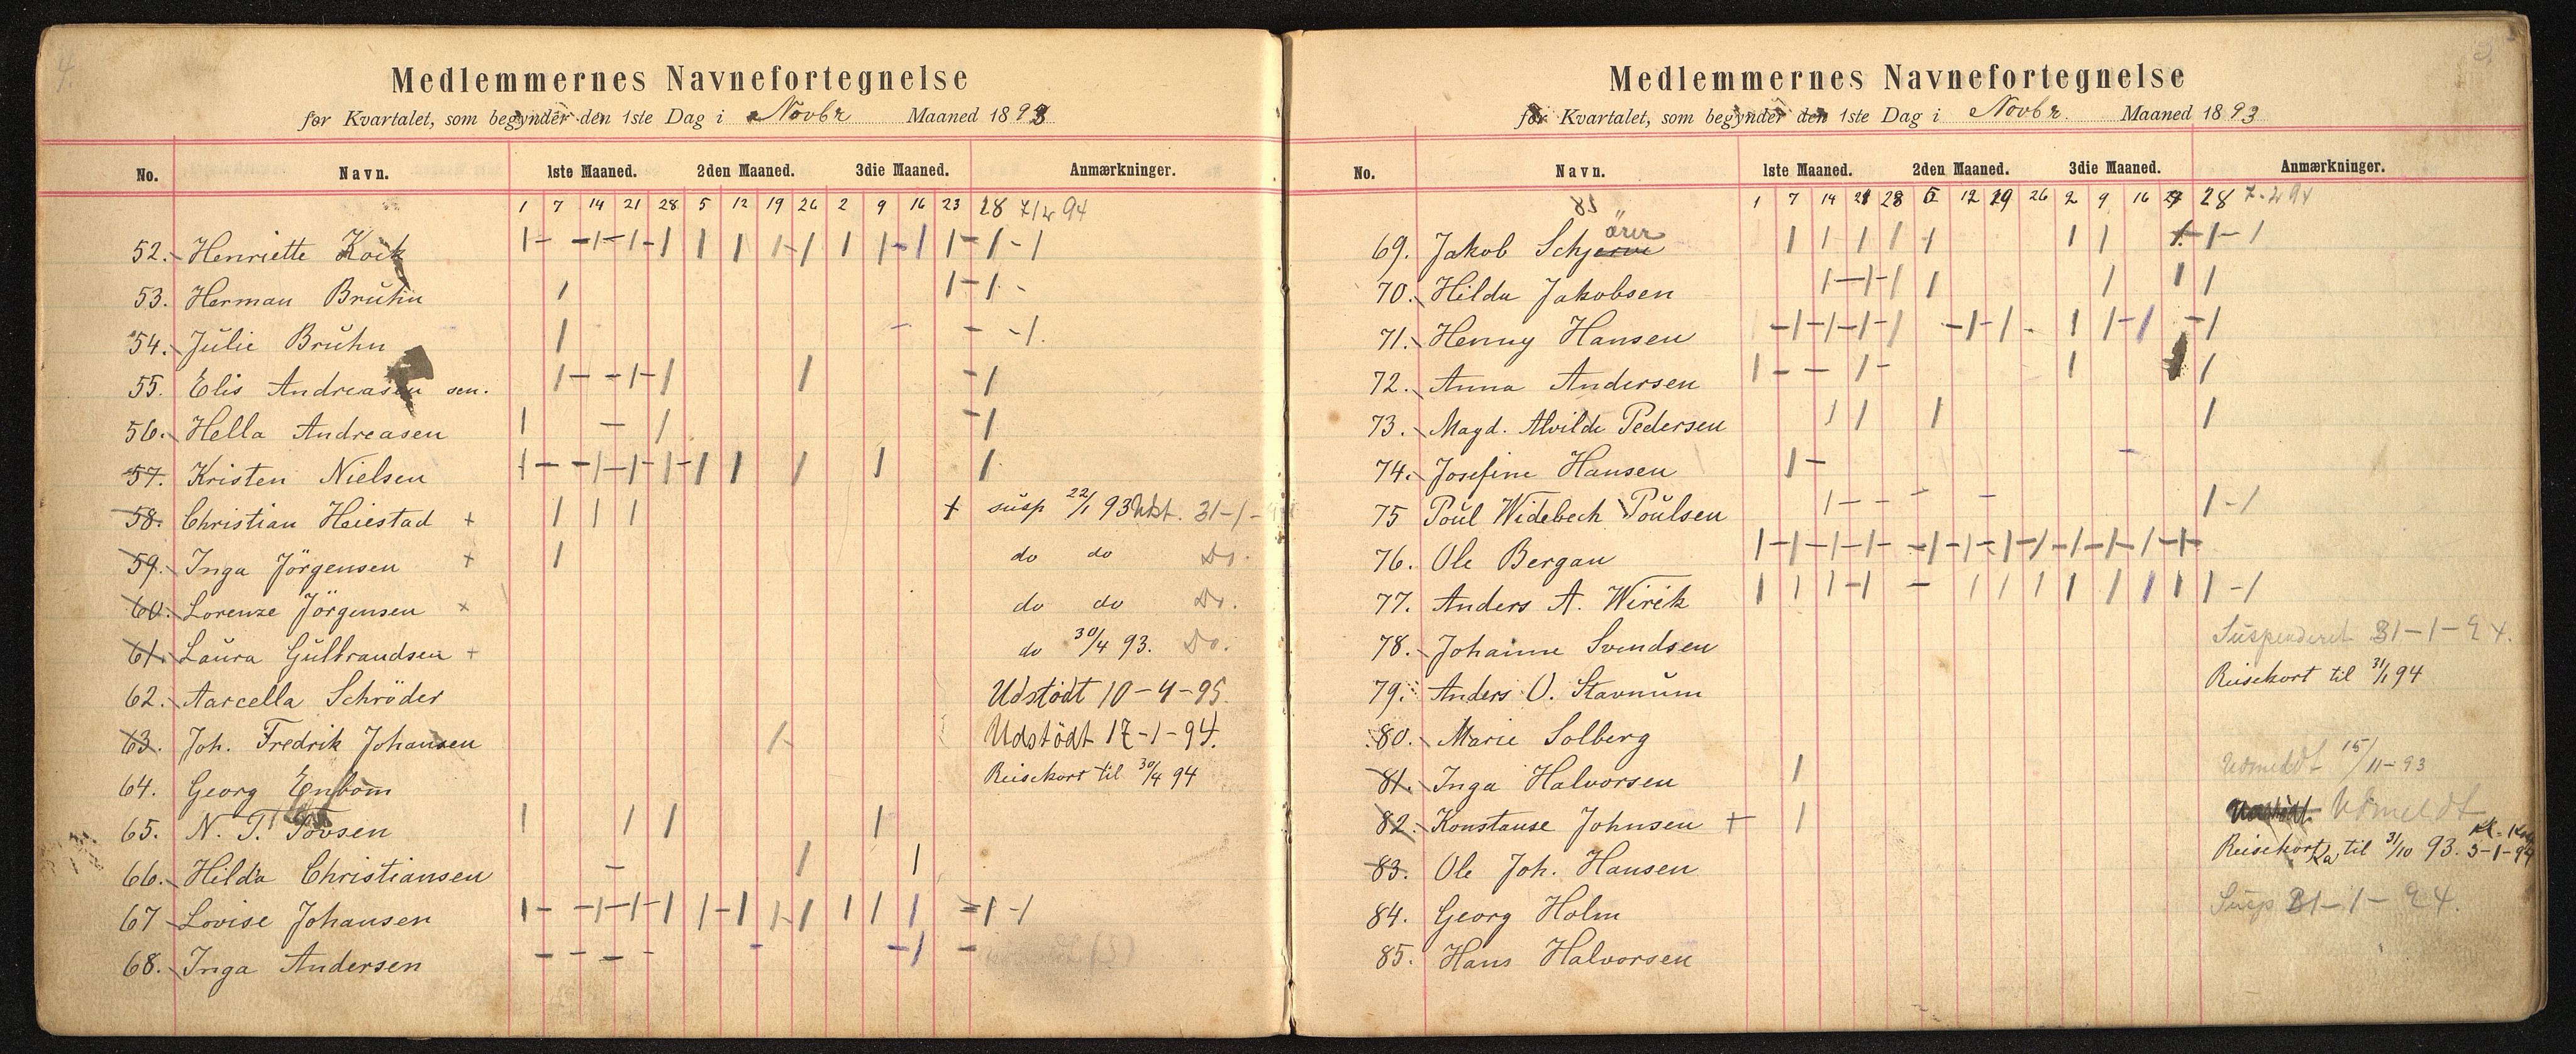 4.
Medlemmernes Navnefortegnelse
for Kvartalet, som begynder den 1ste Dag i Novbr Maaned 1893
No. Navn. 1ste Maaned. 2den Maaned. 3die Maaned. Anmærkninger.
1 7 14 21 28 5 12 19 26 2 9 16 23 28 7/2 94
52. Henriette Koik
53. Herman Bruhn
54. Julie Bruhn
55. Elis Andreasen sen.
56. Hella Andreasen
57. Kristen Nielsen
58. Christian Heiestad + + susp 22/1 93 Ukt. 31-1-
59. Inga Jörgensen + do do Do.
60. Lorenze Jörgensen x do do Do.
61. Laura Gulbrandsen + do 30/4 93. Do.
62. Marcella Schröder Udstödt 10-4-95.
63. Joh. Fredrik Johansen Udstödt 17-1-94.
64. Georg Enbom Reisekort til 30/4 94
65. N. T. Tovsen
66. Hilda Christiansen
67 Lovise Johansen
68. Inga Andersen
Medlemmernes Navnefortegnelse
for Kvartalet, som begynder den 1ste Dag i Novbr. Maaned 1893
No. Navn. 1ste Maaned. 2den Maaned. 3die Maaned. Anmærkninger.
85 1 7 14 21 28 5 12 19 26 2 9 16 23 28 7-2 94
69. Jakob Schjerve ärer
70. Hilda Jakobsen
71. Henny Hansen
72. Anna Andersen
73. Magd. Alvilde Pedersen
74. Josefine Hansen
75 Poul Widebech Poulsen
76. Ole Bergan
77. Anders A. Wirik
78. Johanne Svendsen Suspenderet 31-1-94.
79. Anders O. Stavnum Reisekort til 31/1 94
80. Marie Solberg
81. Inga Halvorsen Udmeldt 15/11-93
82. Konstanse Johnsen + Udstödt. Udmeldt
83. Ole Joh. Hansen Reisekort til 31/10 93. 5-1-94
84. Georg Holm Susp 31-1-94.
85. Hans Halvorsen